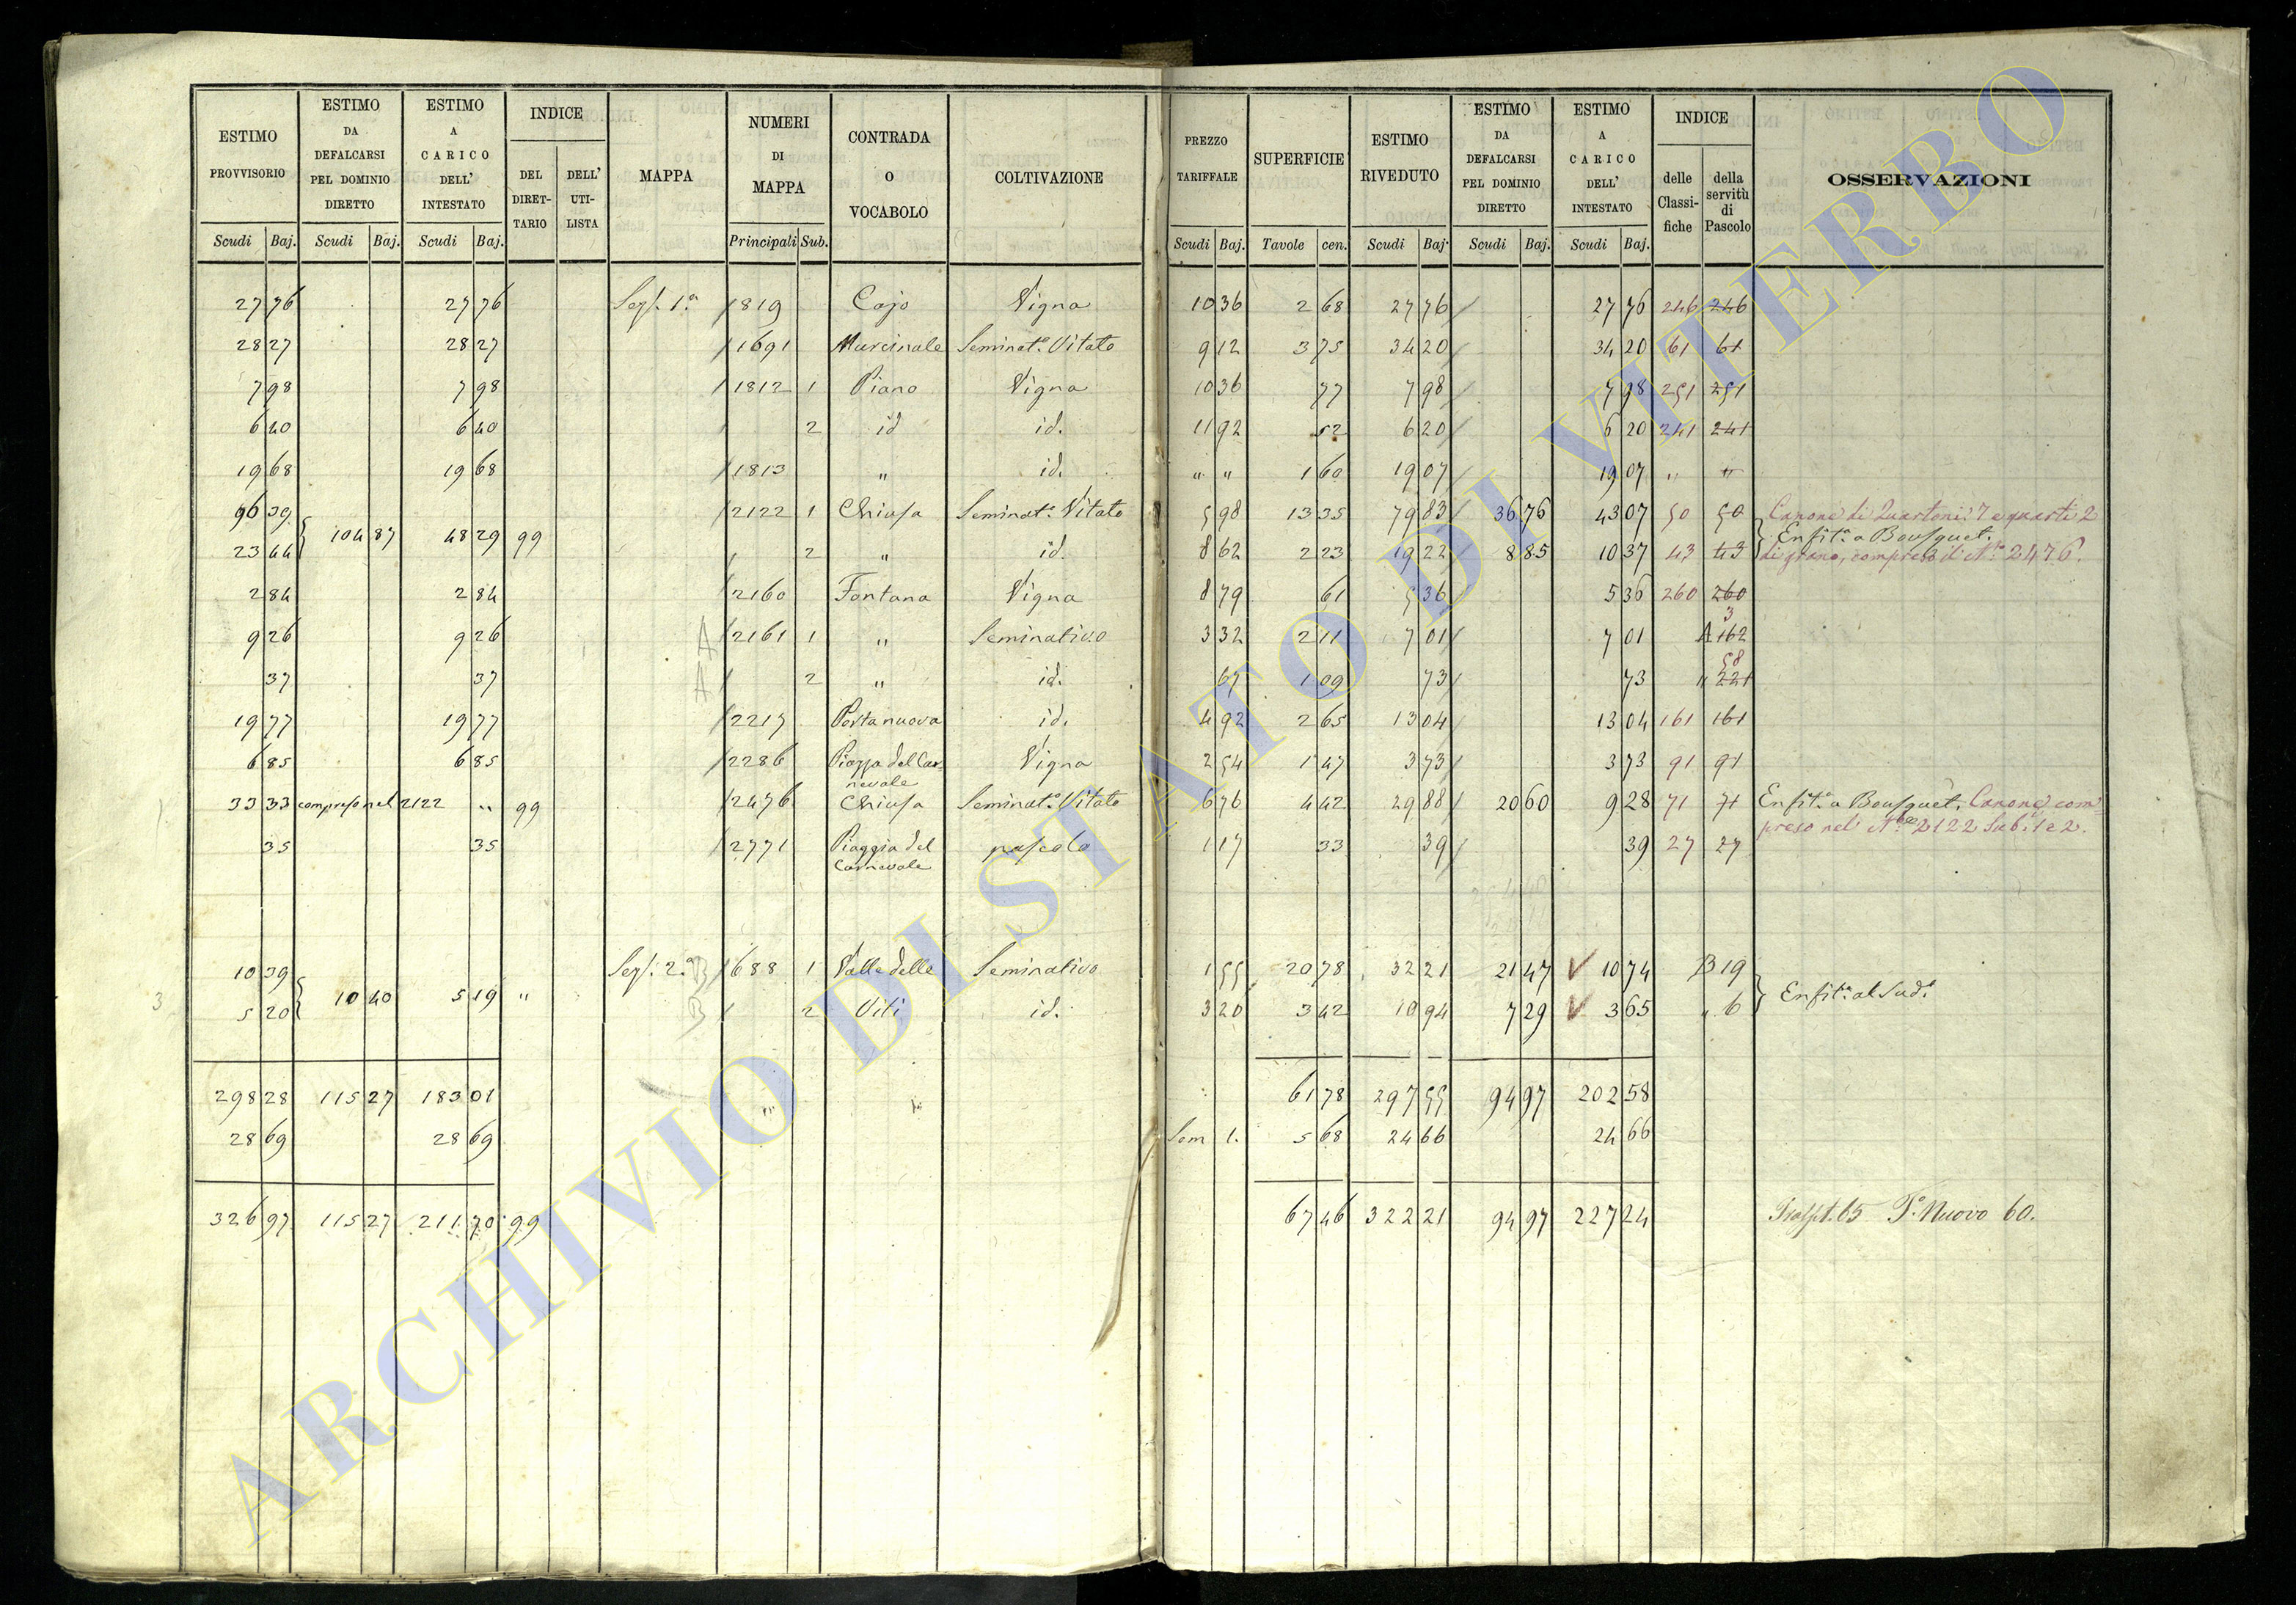 ESTIMO PROVVISORIO | ESTIMO DA DEFALCARSI PEL DOMINIO DIRETTO | ESTIMO A CARICO DELL' INTESTATO | INDICE | MAPPA | NUMERI DI MAPPA | CONTRADA O VOCABOLO | COLTIVAZIONE | PREZZO TARIFFALE | SUPERFICIE | ESTIMO RIVEDUTO | ESTIMO DA DEFALCARSI PEL DOMINIO DIRETTO | ESTIMO A CARICO DELL' INTESTATO | INDICE | OSSERVAZIONI
DEL DIRET-TARIO | DELL' UTI-LISTA | delle Classi-fiche | della servitù di Pascolo
Scudi | Baj. | Scudi | Baj. | Scudi | Baj. | Principali | Sub. | Scudi | Baj. | Tavole | cen. | Scudi | Baj. | Scudi | Baj. | Scudi | Baj.
27 76 | 27 76 | Sez. 1.a | 1819 | Cajo | Vigna | 10 36 | 2 68 | 27 76 | 27 76 | 246 | 246
28 27 | 28 27 | 1691 | Murcinale | Seminat.o Vitato | 9 12 | 3 75 | 34 20 | 34 20 | 61 | 61
7 98 | 7 98 | 1812 | 1 | Piano | Vigna | 10 36 | 77 | 7 98 | 7 98 | 251 | 251
6 40 | 6 40 | 2 | id | id. | 11 92 | 52 | 6 20 | 6 20 | 241 | 241
19 68 | 19 68 | 1813 | " | id. | " " | 1 60 | 19 07 | 19 07 | " | "
96 39 | 2122 | 1 | Chiusa | Seminat.o Vitato | 5 98 | 13 35 | 79 83 | 36 76 | 43 07 | 50 | 50 | Canone di Quartoni 7 e quarti 2
104 87 | 48 29 | 99 | Enfit.a a Bousquet.
23 44 | 2 | " | id. | 8 62 | 2 23 | 19 22 | 8 85 | 10 37 | 43 | 43 | di grano, compreso il N.o 2476.
2 84 | 2 84 | 2160 | Fontana | Vigna | 8 79 | 61 | 5 36 | 5 36 | 260 | 260
3
9 26 | 9 26 | A | 2161 | 1 | " | Seminativo | 3 32 | 2 11 | 7 01 | 7 01 | A 162
58
37 | 37 | A | 2 | " | id. | 67 | 1 09 | 73 | 73 | " 221
19 77 | 19 77 | 2217 | Porta nuova | id. | 4 92 | 2 65 | 13 04 | 13 04 | 161 | 161
6 85 | 6 85 | 2286 | Piazza del Car= | Vigna | 2 54 | 1 47 | 3 73 | 3 73 | 91 | 91
nevale
33 33 | compreso nel 2122 | " | 99 | 2476 | Chiusa | Seminat.o Vitato | 6 76 | 4 42 | 29 88 | 20 60 | 9 28 | 71 | 71 | Enfit.a a Bousquet. Canone com=
preso nel N.o 2122 Sub. 1 e 2.
35 | 35 | 2771 | Piaggia del | pascolo | 1 17 | 33 | 39 | 39 | 27 | 27
Carnevale
10 39 | Sez. 2.a | B | 688 | 1 | Valle delle | Seminativo | 1 55 | 20 78 | 32 21 | 21 47 | 10 74 | B 19
3 | 10 40 | 5 19 | " | Enfit.a al Sud.o
5 20 | B | 2 | Viti | id. | 3 20 | 3 42 | 10 94 | 7 29 | 3 65 | " 6
298 28 | 115 27 | 183 01 | 61 78 | 297 55 | 94 97 | 202 58
28 69 | 28 69 | Sem 1. | 5 68 | 24 66 | 24 66
326 97 | 115 27 | 211 70 | 99 | 67 46 | 322 21 | 94 97 | 227 24 | P.o Nuovo 60.
ARCHIVIO DI STATO DI VITERBO